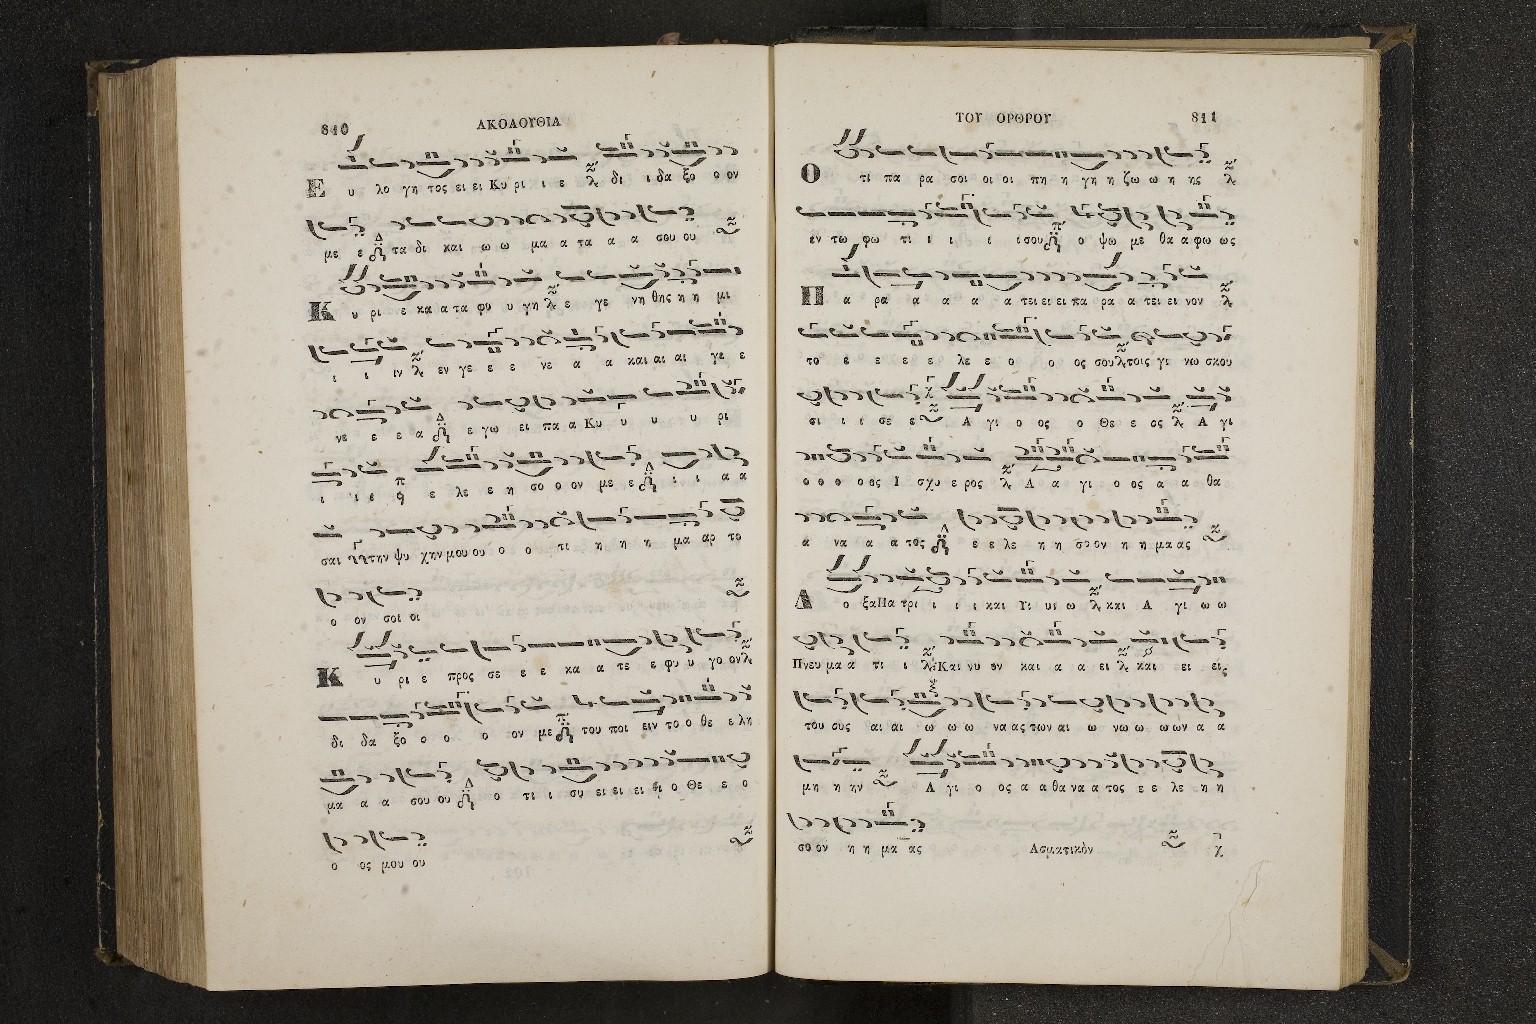 810 ΑΚΟΛΟΥΘΙΑ
Ε υ λο γη τος ει ει Κυ ρι ι ε δι ι δα ξο ο ον
με ε τα δι και ω ω μα α τα α α σου ου
Κ υ ρι ε κα α τα φυ υ γη ε γε νη θης η η μι
ι ι ιν εν γε ε ε νε α α και αι αι γε ε
νε ε ε α ε γω ει πα α Κυ υ υ υ ρι
ι ι ε ε λε ε η σο ο ον με ε ι ι α α
σαι την ψυ χην μου ου ο ο τι η η η μα αρ το
ο ον σοι οι
Κ υ ρι ε προς σε ε ε κα α τε ε φυ υ γο ον
δι δα ξο ο ο ο ον με του ποι ειν το ο θε ε λη
μα α α σου ου ο τι ι συ ει ει ει ει ο Θε ε ο
ο ος μου ου
ΤΟΥ ΟΡΘΡΟΥ 811
Ο τι πα ρα σοι οι οι πη η γη η ζω ω η ης
εν τω φω τι ι ι ι ι σου ο ψω με θα α φω ως
Π α ρα α α α α τει ει ει πα ρα α τει ει νον
το ε ε ε ε λε ε ο ο ος σου τοις γι νω σκου
σι ι ι σε ε Α γι ο ος ο Θε ε ος Α γι
ο ο ο ο ος Ι σχυ ε ρος Α α γι ο ος α α θα
α να α α τος ε ε λε η η σο ον η η μα ας
Δ ο ξα Πα τρι ι ι ι και Υι υι ω και Α γι ω ω
Πνευ μα α τι ι Και νυ υν και α α ει και ει εις
τους ους αι αι ω ω ω να ας των αι ω νω ω ω ων α α
μη η ην Α γι ο ος α α θα να α τος ε ε λε η η
σο ον η η μα ας Ασματικὸν